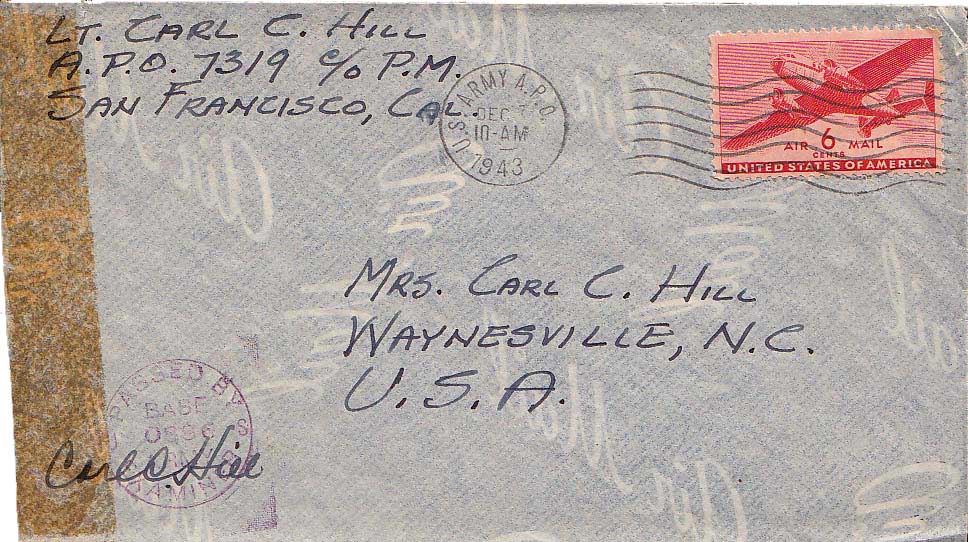 LT. CARL C. HILL
A.P.O. 7319 c/o P.M.
SAN FRANCISCO, CAL.
U.S. ARMY A.P.O.
DEC
10-AM
1943
AIR 6 MAIL
CENTS
UNITED STATES OF AMERICA
MRS. CARL C. HILL
WAYNESVILLE, N.C.
U.S.A.
PASSED BY
BASE
Carl C. Hill